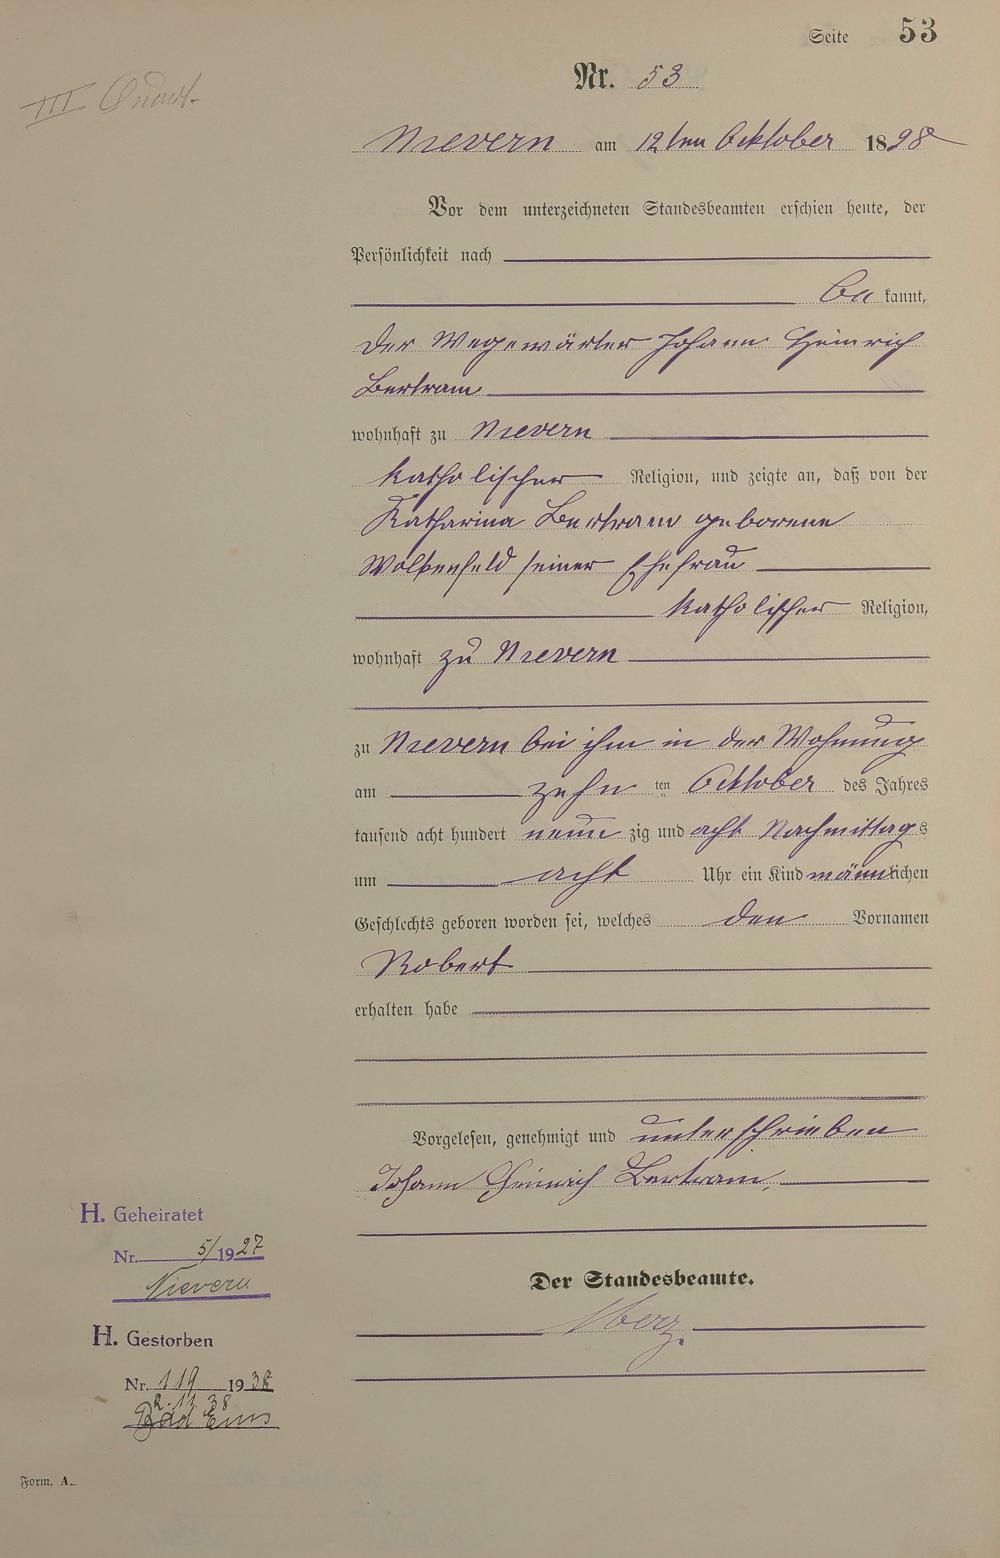 Seite 53
Nr. 53
III Quart.
Nievern am 12ten Oktober 1898
Vor dem unterzeichneten Standesbeamten erschien heute, der
Persönlichkeit nach
be kannt,
der Wegewärter Johann Heinrich
Bertram
wohnhaft zu Nievern
katholischer Religion, und zeigte an, daß von der
Katharina Bertram geborene
Wolkenfeld seiner Ehefrau
katholischer Religion,
wohnhaft zu Nievern
zu Nievern bei ihm in der Wohnung
am zehn ten Oktober des Jahres
tausend acht hundert neun zig und acht Nachmittags
um acht Uhr ein Kind männlichen
Geschlechts geboren worden sei, welches den Vornamen
Robert
erhalten habe
Vorgelesen, genehmigt und unterschrieben
Johann Heinrich Bertram.
H. Geheiratet
Nr. 5/1927
Nievern
Der Standesbeamte.
H. Gestorben
Nr. 119 1938
2.11.38
Bad Ems
Form. A.